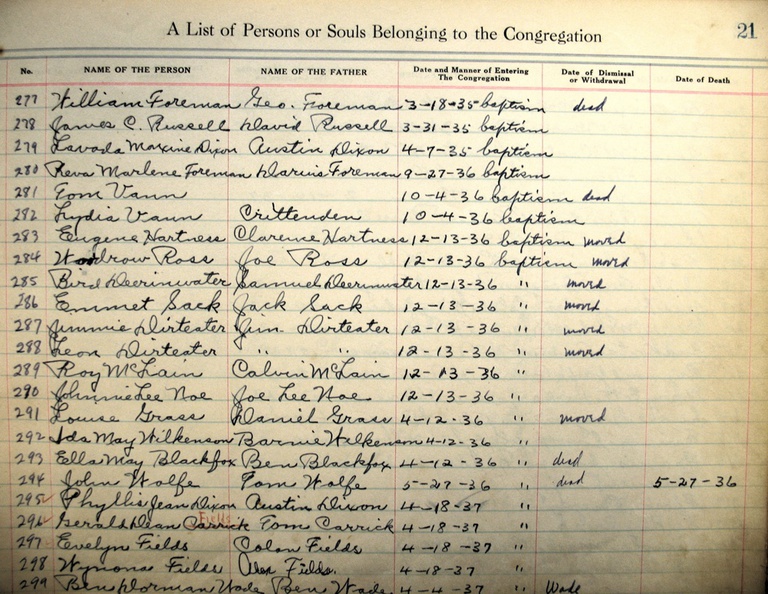 A List of Persons or Souls Belonging to the Congregation 21
No. NAME OF THE PERSON NAME OF THE FATHER Date and Manner of Entering The Congregation Date of Dismissal or Withdrawal Date of Death
277 William Foreman Geo. Foreman 3-18-35 baptism dead
278 James C. Russell David Russell 3-31-35 baptism
279 Lavada Maxine Dixon Austin Dixon 4-7-35 baptism
280 Reva Marlene Foreman Darius Foreman 9-27-36 baptism
281 Tom Vann 10-4-36 baptism dead
282 Lydia Vann Crittenden 10-4-36 baptism
283 Eugene Hartness Clarence Hartness 12-13-36 baptism moved
284 Woodrow Ross Joe Ross 12-13-36 baptism moved
285 Bird Deerinwater Samuel Deerinwater 12-13-36 " moved
286 Emmet Sack Jack Sack 12-13-36 " moved
287 Jimmie Dirteater Jim Dirteater 12-13-36 " moved
288 Leon Dirteater " " 12-13-36 " moved
289 Roy McLain Calvin McLain 12-13-36 "
290 Johnnie Lee Noe Joe Lee Noe 12-13-36 "
291 Louise Grass Daniel Grass 4-12-36 " moved
292 Ida May Wilkenson Barnie Wilkenson 4-12-36 "
293 Ella May Blackfox Ben Blackfox 4-12-36 " dead
294 John Wolfe Tom Wolfe 5-27-36 " dead 5-27-36
295 Phyllis Jean Dixon Austin Dixon 4-18-37 "
296 Gerald Dean Carrick Fields Tom Carrick 4-18-37 "
297 Evelyn Fields Colon Fields 4-18-37 "
298 Wynona Fields Alex Fields 4-18-37 "
299 Ben Dorman Wade Ben Wade 4-4-37 " Wade